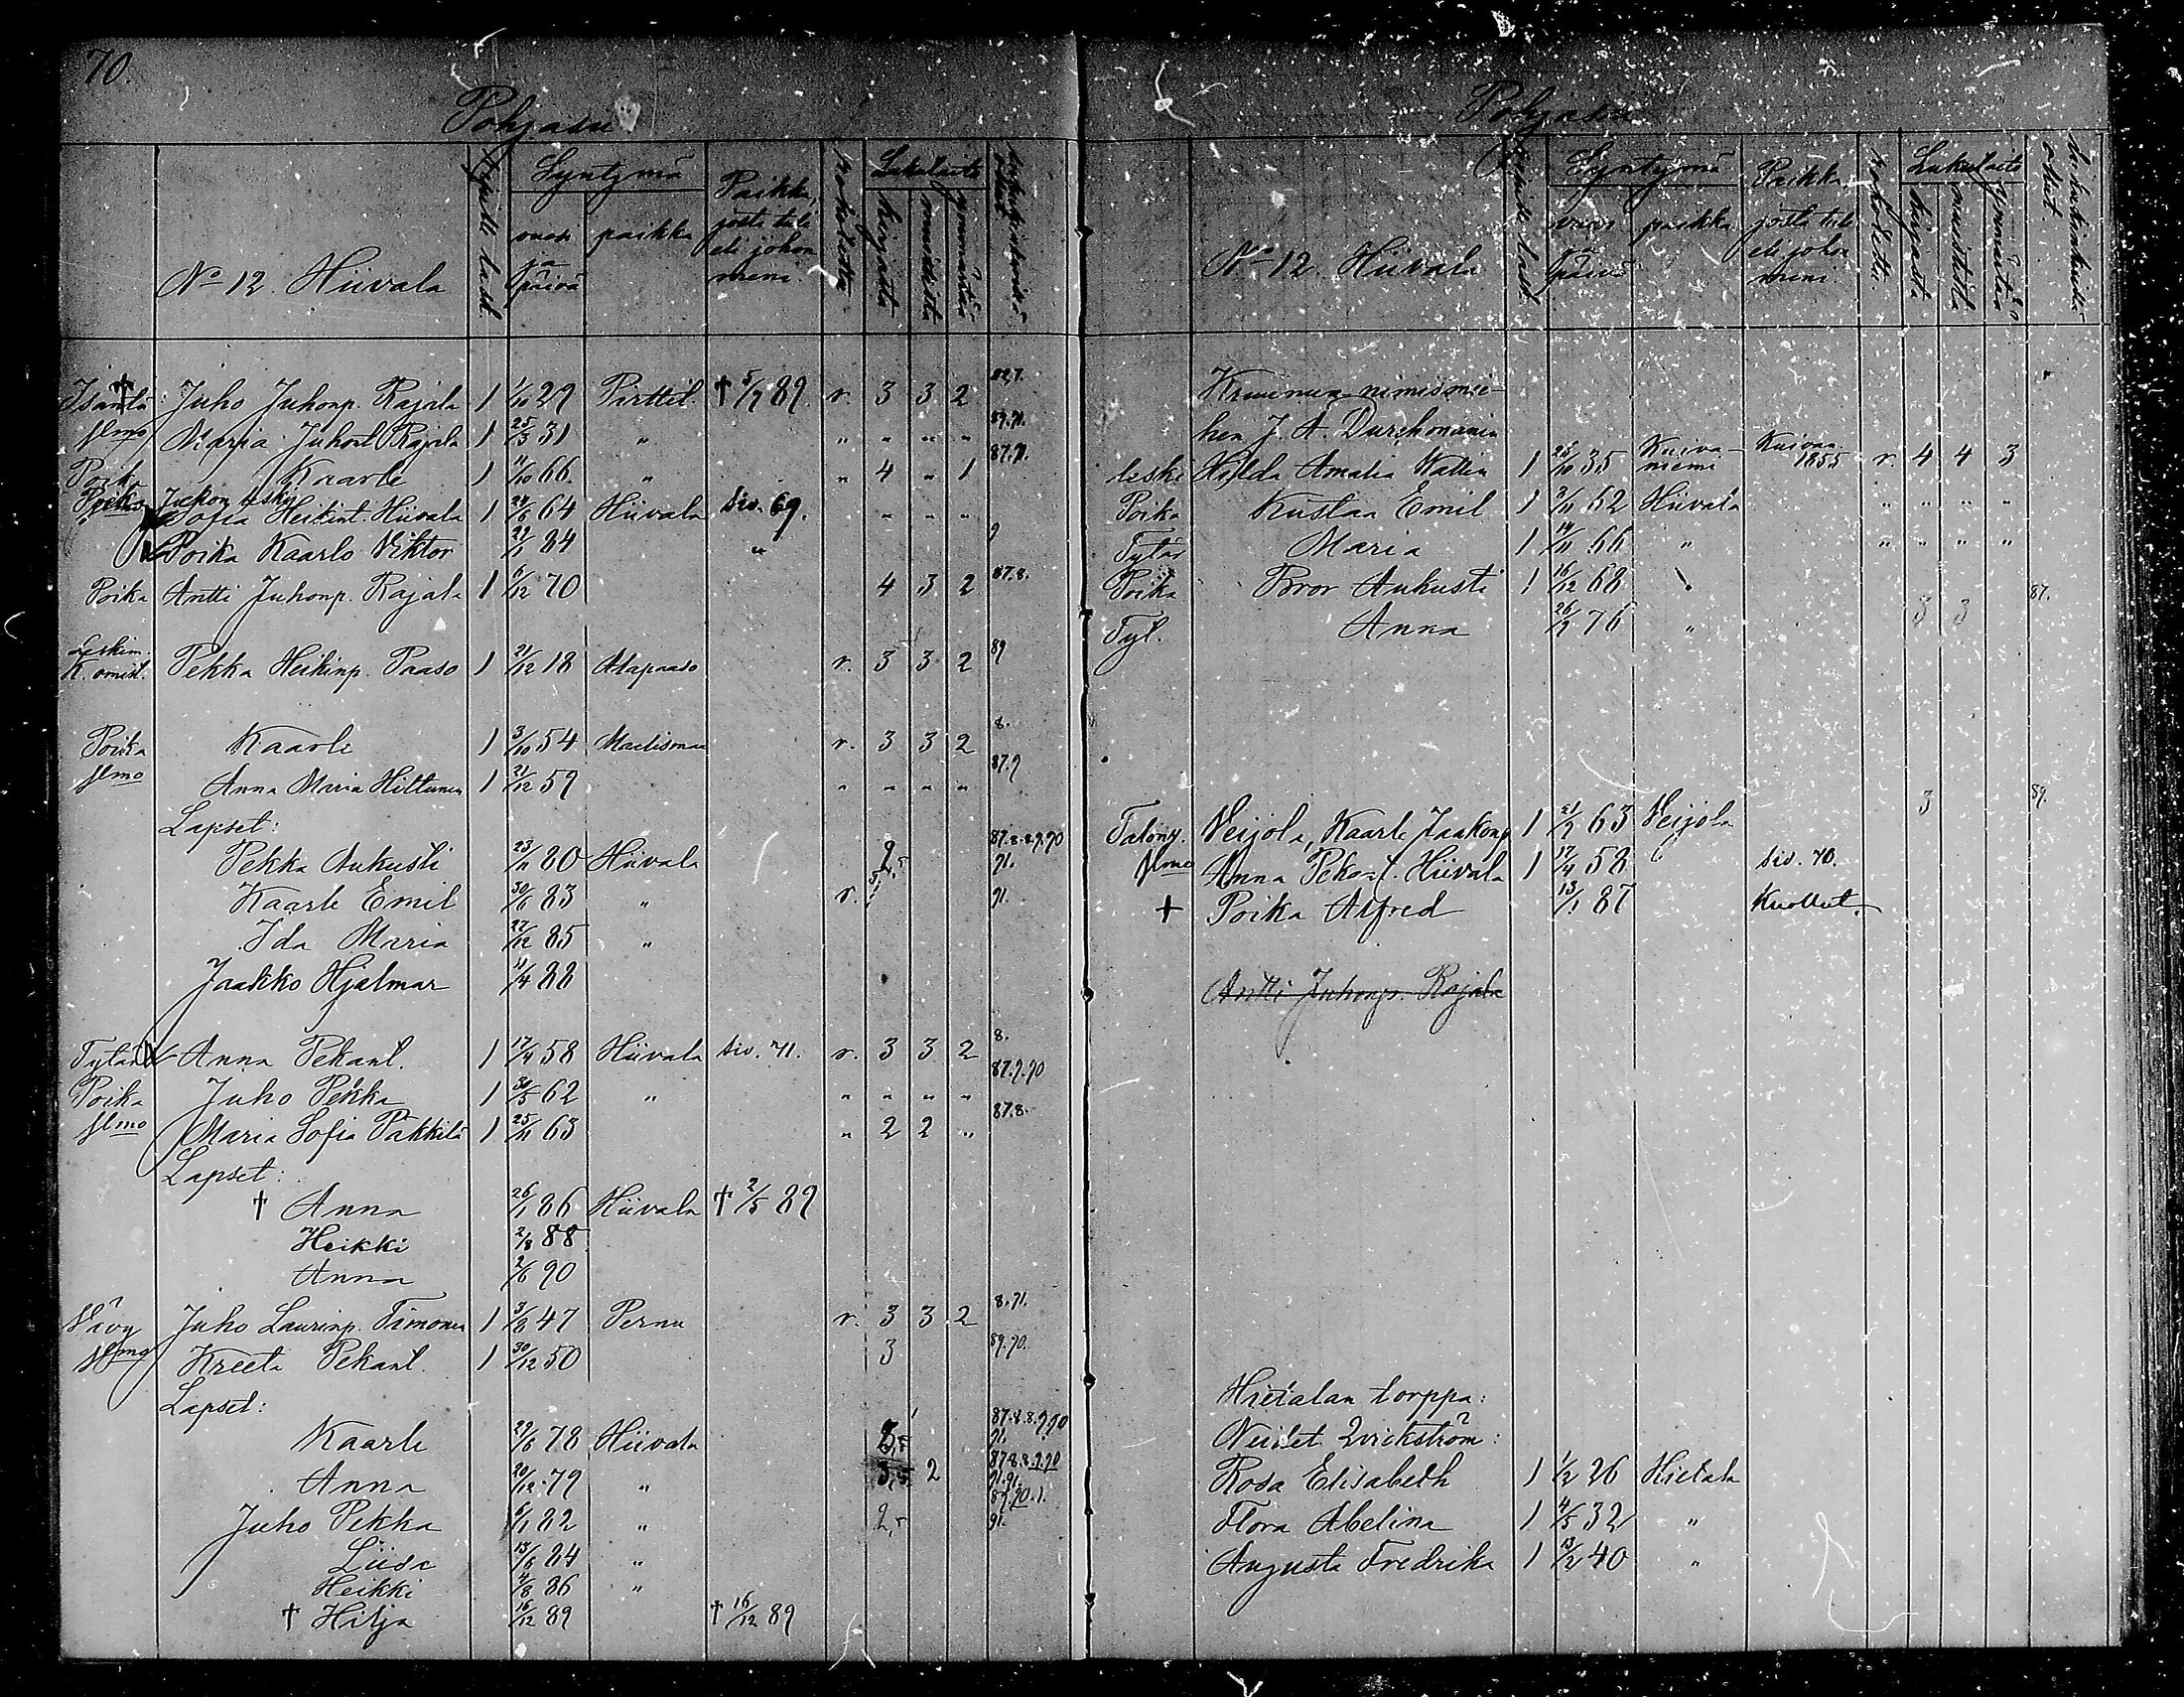 70.
Pohjasu
Syntymä
Paikka, josta tuli eli johon meni.
Lukutaito
vuosi ja päivä
paikka
kirjasta
No 12. Hiivala
† Isäntä Juho Juhonp. Rajala 1 1/10 29 Pirttil. † 5/7 89. r. 3 3 2
Wmo Maria Juhont. Rajala 1 25/3 31 " " " " " 89.91.
Poik. Kaarle 1 11/10 66. " " 4 " 1 87.91.
Poika Juhon lesky
Sofia Heikint. Hiivala 1 24/8 64 Hiivala Siv. 69. " " "
Poika Kaarlo Viktor 21/1 84 " 9
Poika Antti Juhonp. Rajala 1 6/12 70 4 3 2 87.8.
Leskim.
K. omist. Pekka Heikinp. Paaso 1 21/12 18 Alapaaso r. 3 3 2 89
Poika Kaarle 1 3/10 54 r. 3 3 2 8.
Wmo Anna Maria Hiltunen 1 21/12 59 " " " " 87.9
Lapset:
Pekka Aukusti 23/11 80 Hiivala 87.8.8.9.90 91.
Kaarle Emil 30/6 83 " r. 91.
Ida Maria 27/12 85 "
Jaakko Hjalmar 11/4 88
Tytär Anna Pekant. 1 17/4 58 Hiivala Siv. 71. r. 3 3 2 8.
Poika Juho Pekka 1 30/5 62 " " " " " 87.9.90
Wmo Maria Sofia Päkkilä 1 25/11 63 " 2 2 " 87.8.
Lapset:
† Anna 26/1 86 Hiivala † 2/5 89
Heikki 2/8 88
Anna 2/6 90
Vävy Juho Laurinp. Timonen 1 3/8 47 Pernu r. 3 3 2 8.91.
Wmo Kreeta Pekant. 1 30/12 50 3 89.90.
Lapset:
Kaarle 29/6 78 Hiivala 87.8.8.9.90 91.
Anna 20/12 79 " 2 87.8.8.9.90
Juho Pekka 6/1 82 " 2,5 91.
Liisa 13/6 84 "
Heikki 4/8 86 "
† Hilja 16/12 89 † 16/12 89
Pohjasu
Syntymä
Paikka, josta tuli eli johon meni.
Lukutaito
vuosi ja päivä
paikka
kirjasta
No 12. Hiivala
Kruunun nimismie-
hen J. A. Durchmanin
leski Hilda Amalia Wallin 1 28/10 35 Kuiva-niemi Kuivan. 1855 r. 4 4 3
Poika Kustaa Emil 1 3/11 62 Hiivala " " " "
Tytär Maria 1 14/11 66 " " " " "
Poika Bror Aukusti 1 16/12 68
Tyt. Anna 26/2 76 " 3 3 87.
Talony. Veijola, Kaarle Jaakonp 1 21/2 63 Veijola 3 89.
Wmo Anna Pekant. Hiivala 1 17/4 58 Siv. 70.
+ Poika Alfred 13/1 87 Kuollut.
Antti Juhonp. Rajala
Hietalan torppa:
Neidet Qvickström:
Rosa Elisabeth 1 1/2 26 Hietala
Flora Abelina 1 4/5 32 "
Augusta Fredrika 1 13/2 40 "